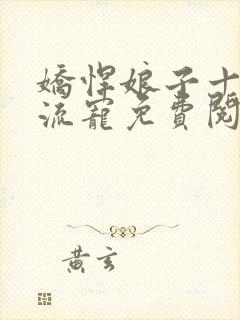 嬌悍娘子十
流寵免費閱
黃玄